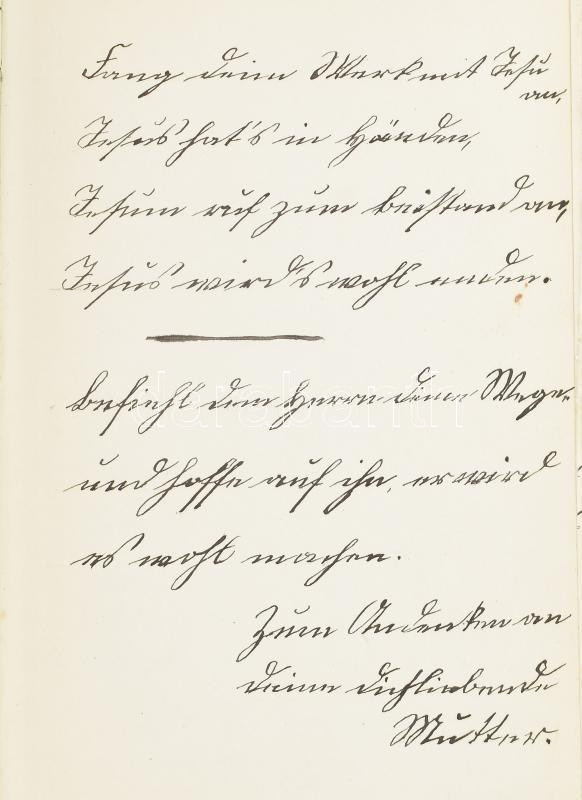 Fang dein Werk mit Jesu
an,
Jesus hat's in Händen,
Jesum ruf zum Beistand an,
Jesus wird's wohl enden.
Befiehl dem Herrn deine Wege
und hoffe auf ihn, er wird
es wohl machen.
Zum Andenken an
deine dichliebende
Mutter.
darabanth